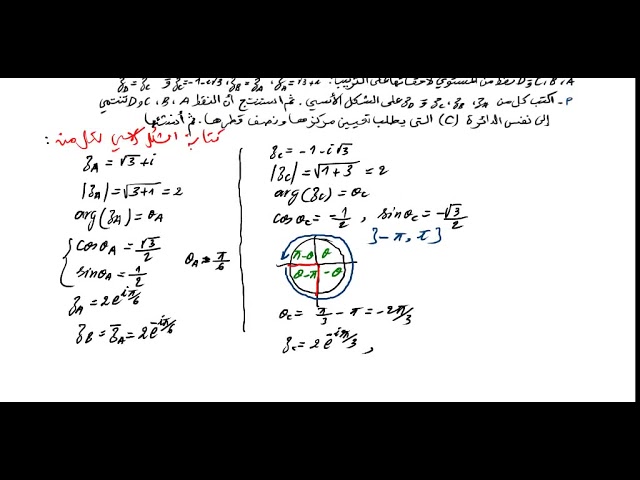 A، B، C و D نقط من المستوي لاحقاتها على الترتيب: z_A = √3+i، z_B = z̄_A، z_C = -1-i√3 و z_D = z̄_C
P - اكتب كل من z_A، z_B، z_C و z_D على الشكل الأسي. ثم استنتج أن النقط A، B، C و D تنتمي
إلى نفس الدائرة (C) التي يطلب تعيين مركزها ونصف قطرها. ثم أنشئها
كتابة الشكل الأسي لكل من:
z_A = √3 + i
|z_A| = √3+1 = 2
arg(z_A) = θ_A
cosθ_A = √3/2
sinθ_A = 1/2
θ_A = π/6
z_A = 2e^{iπ/6}
z_B = z̄_A = 2e^{-iπ/6}
z_C = -1-i√3
|z_C| = √1+3 = 2
arg(z_C) = θ_C
cosθ_C = -1/2 , sinθ_C = -√3/2
]-π, π]
π-θ θ
θ-π -θ
θ_C = π/3 - π = -2π/3
z_C = 2e^{-iπ/3} ,